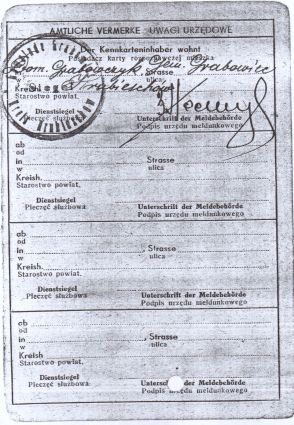 AMTLICHE VERMERKE - UWAGI URZĘDOWE
Der Kennkarteninhaber wohnt
Posiadacz karty rozpoznawczej mieszka
Grabowczyk, Gem. Grabowiec
, Strasse
ulica
Kreish.
Starostwo powiat.
Hrubieschow
Dienstsiegel
Pieczęć służbowa
Unterschrift der Meldebehörde
Podpis urzędu meldunkowego
ab
od
in
w
, Strasse
ulica
Kreish.
Starostwo powiat.
Dienstsiegel
Pieczęć służbowa
Unterschrift der Meldebehörde
Podpis urzędu meldunkowego
ab
od
in
w
, Strasse
ulica
Kreish.
Starostwo powiat.
Dienstsiegel
Pieczęć służbowa
Unterschrift der Meldebehörde
Podpis urzędu meldunkowego
ab
od
in
w
, Strasse
ulica
Kreish
Starostwo powiat.
Dienstsiegel
Pieczęć służbowa
der Meldebehörde
Podpis urzędu meldunkowego